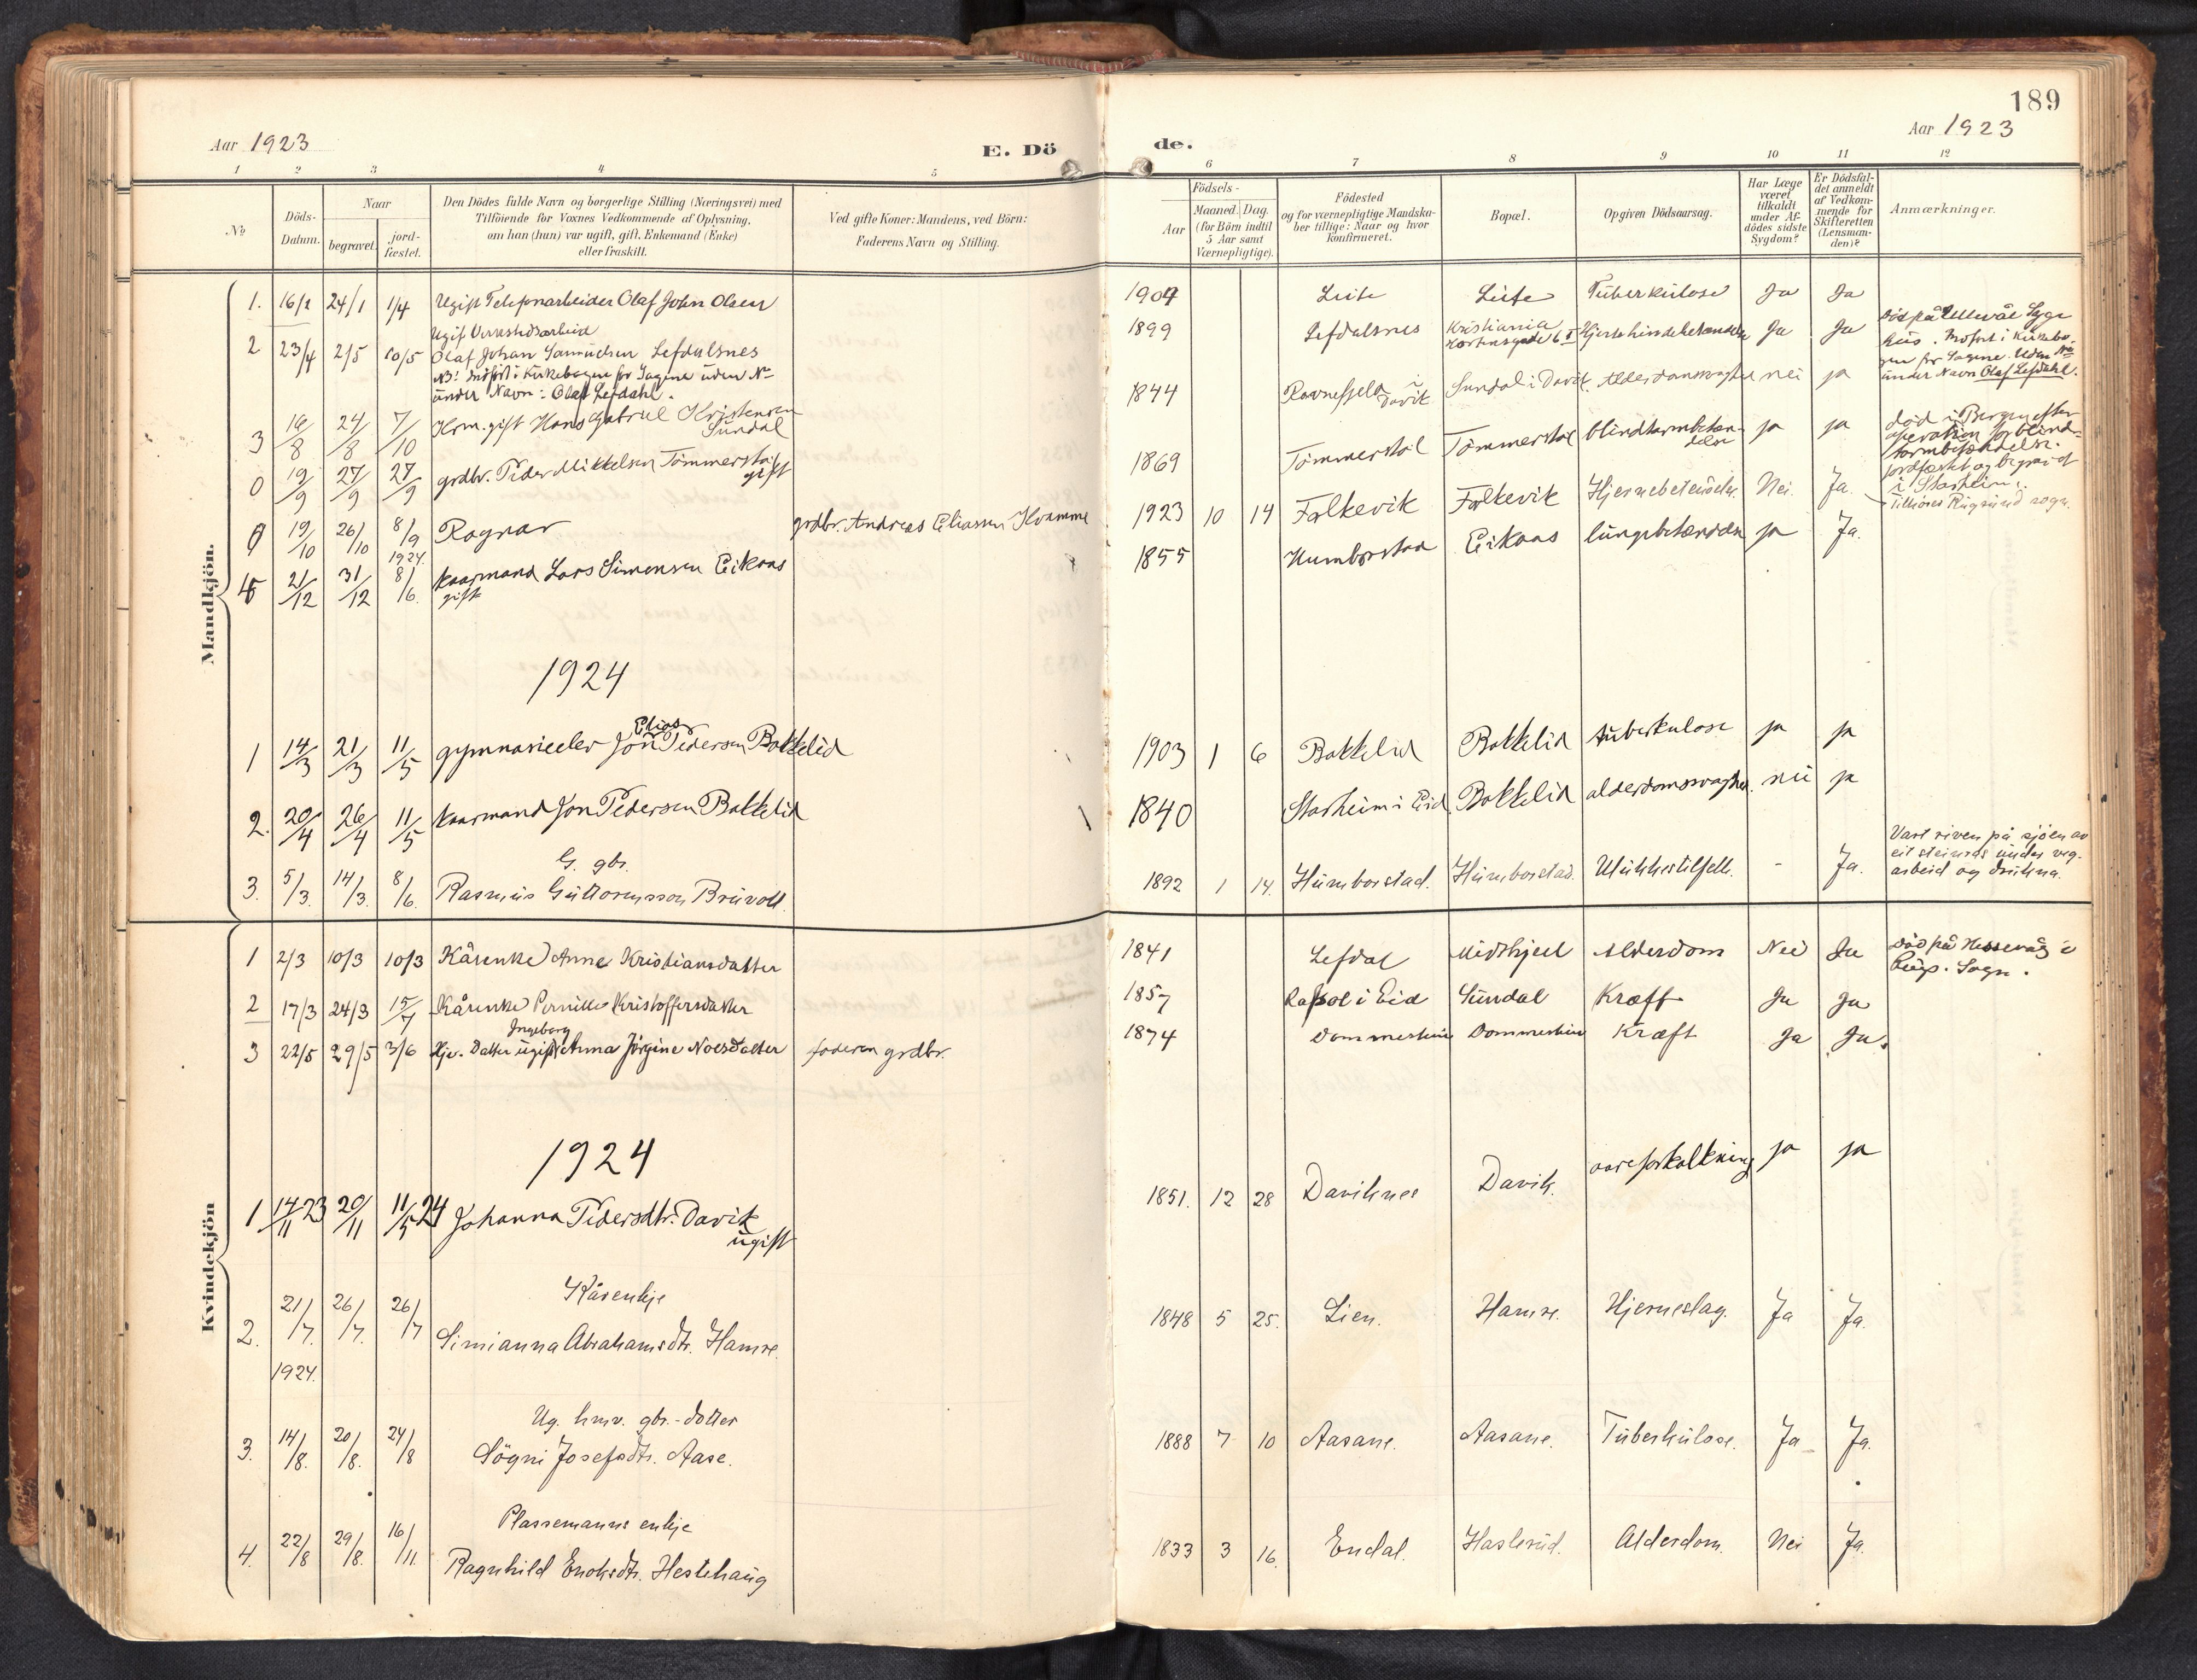 189
Aar 1923
E. Dö
de.
Aar 1923
1 2 3 4 5 6 7 8 9 10 11 12
No
Döds-
Datum.
Naar
begravet.
jord-
fæstet.
Den Dödes fulde Navn og borgerlige Stilling (Næringsvei) med
Tilföiende for Voxnes Vedkommende af Oplysning,
om han (hun) var ugift, gift, Enkemand (Enke)
eller fraskilt.
Ved gifte Koner: Mandens, ved Börn:
Faderens Navn og Stilling.
Födsels-
Aar
Maaned. Dag.
(for Börn indtil
5 Aar samt
Værnepligtige).
Födested
og for værnepligtige Mandska-
ber tillige: Naar og hvor
Konfirmeret.
Bopæl.
Opgiven Dödsaarsag.
Har Læge
været
tilkaldt
under Af-
dödes sidste
Sygdom?
Er Dödsfal-
det anmeldt
af Vedkom-
mende for
Skifteretten
(Lensman-
den)?
Anmærkninger.
Mandkjön.
1. 16/1 24/1 1/4 Ugift Telefonarbeider Olaf John Olsen 1904 Leite Leite Tuberkulose Ja Ja
Ugift Verkstedsarbeid
2 23/4 2/5 10/5 Olaf Johan Samuelsen Lefdalsnes 1899 Lefdalsnes Kristiania Hjertehindebetændelse Ja Ja
NB! Indført i Kirkebogen for Sagene uden No
under Navn: Olaf Lefdahl.
Død på Ullevål Syge
hus. Indført i Kirkebo-
gen for Sagene. Uden No
under Navn Olaf Lefdahl.
3 16/8 24/8 7/10 Krm. gift Hans Gabriel Kristensen
Sundal 1844 Ravnefjeld i
Davik Sundal i Davik. Alderdomssvaghed nei ja
0 19/9 27/9 27/9 grdbr. Peder Mikkelsen Tömmerstøl
gift 1869 Tömmerstöl Tömmerstøl blindtarmbetæn-
delse ja ja
død i Bergen efter
operation for blind-
tarmbetændelse.
jordfæstet og begravet
i Starheim.
19/10 26/10 8/9 1924. Ragnar grdbr. Andreas Eliassen Kvamme 1923 10 14 Falkevik Falkevik Nei. Ja.
Tilhører Rugsund sogn.
21/12 31/12 8/6. kaarmand Lars Simensen Eikaas
gift 1855 Humborstad Eikaas lungebetændelse ja Ja.
1924
1 14/3 21/3 11/5 gymnasieelev Jon Elias Pedersen Bakkelid 1903 1 6 Bakkelid Bakkelid tuberkulose ja ja
2. 20/4 26/4 11/5 kaarmand Jon Pedersen Bakkelid 1840 Starheim i Eid. Bakkelid alderdomssvaghed. nei ja
G. gbr.
3. 5/3. 14/3. 8/6. Rasmus Guttormsson Bruvoll. 1892 1 14. Humborstad. Humborstad. Ulukkestilfelle. - Ja.
Vart riven på sjøen av
eit steinras under veg-
arbeid og drukna.
Kvindekjön
1 2/3 10/3 10/3 Kårenke Anne Kristiansdatter 1841 Lefdal Midthjell Alderdom Nei Ja
2 17/3 24/3 15/7 Kårenke Pernille Kristoffersdatter 1857 i Eid Sundal Kræft Ja Ja
3 22/5 29/5 3/6 Datter ugift Ingeborg Anna Jørgine faderen grdbr. 1874 Kræft Ja Ja.
1924
1 14/11 23 20/11 11/5 24 Johanna Pedersdtr. Davik
ugift 1851. 12 28 Daviknes Davik. aareforkalkning ja ja
Kårenkje
2. 21/7. 26/7. 26/7 Simianna Abrahamsdtr. Hamre. 1848 5 25. Lien. Hamre. Hjerneslag. Ja Ja.
1924.
Ug. hmv. gbr.-dotter
3. 14/8. 20/8. 24/8 Sögni Josefsdtr. Aase. 1888 7 10 Aasane. Aasane. Tuberkulose. Ja Ja.
Plassemanns enkje
4. 22/8 29/8. 16/11. Ragnhild Enoksdtr. Hestehaug 1833 3 16. Endal. Haslerud. Alderdom. Nei Ja.